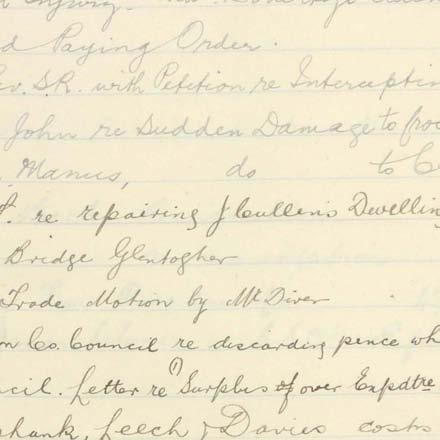 d Paying Order.
v. S.R. with Petition re Interceptin
John re Sudden Damage to
Manus, do to C
re repairing J Cullen's Dwellin
Bridge Glentogher
Trade Motion by Mr Diver
n Co. Council re discarding pence wh
cil. Letter re (1) Surplus of over Expdtre
shank, Leech & Davies costs